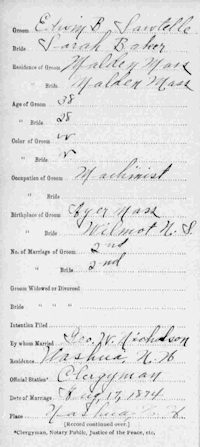 Groom Edwin B. Sawtelle
Bride Sarah Baker
Residence of Groom Malden Mass
" Bride Malden Mass
Age of Groom 38
" Bride 28
Color of Groom W
" Bride W
Occupation of Groom Machinist
" Bride
Birthplace of Groom Ayer Mass
" Bride Wilmot N. S.
No. of Marriage of Groom 2nd
" Bride 2nd
Groom Widowed or Divorced
Bride " " "
Intention Filed
By whom Married Geo. W. Nicholson
Residence Nashua, N. H
Official Station* Clergyman
Date of Marriage 17, 1874
Place Nashua N. H.
[Record continued over.]
*Clergyman, Notary Public, Justice of the Peace, etc.